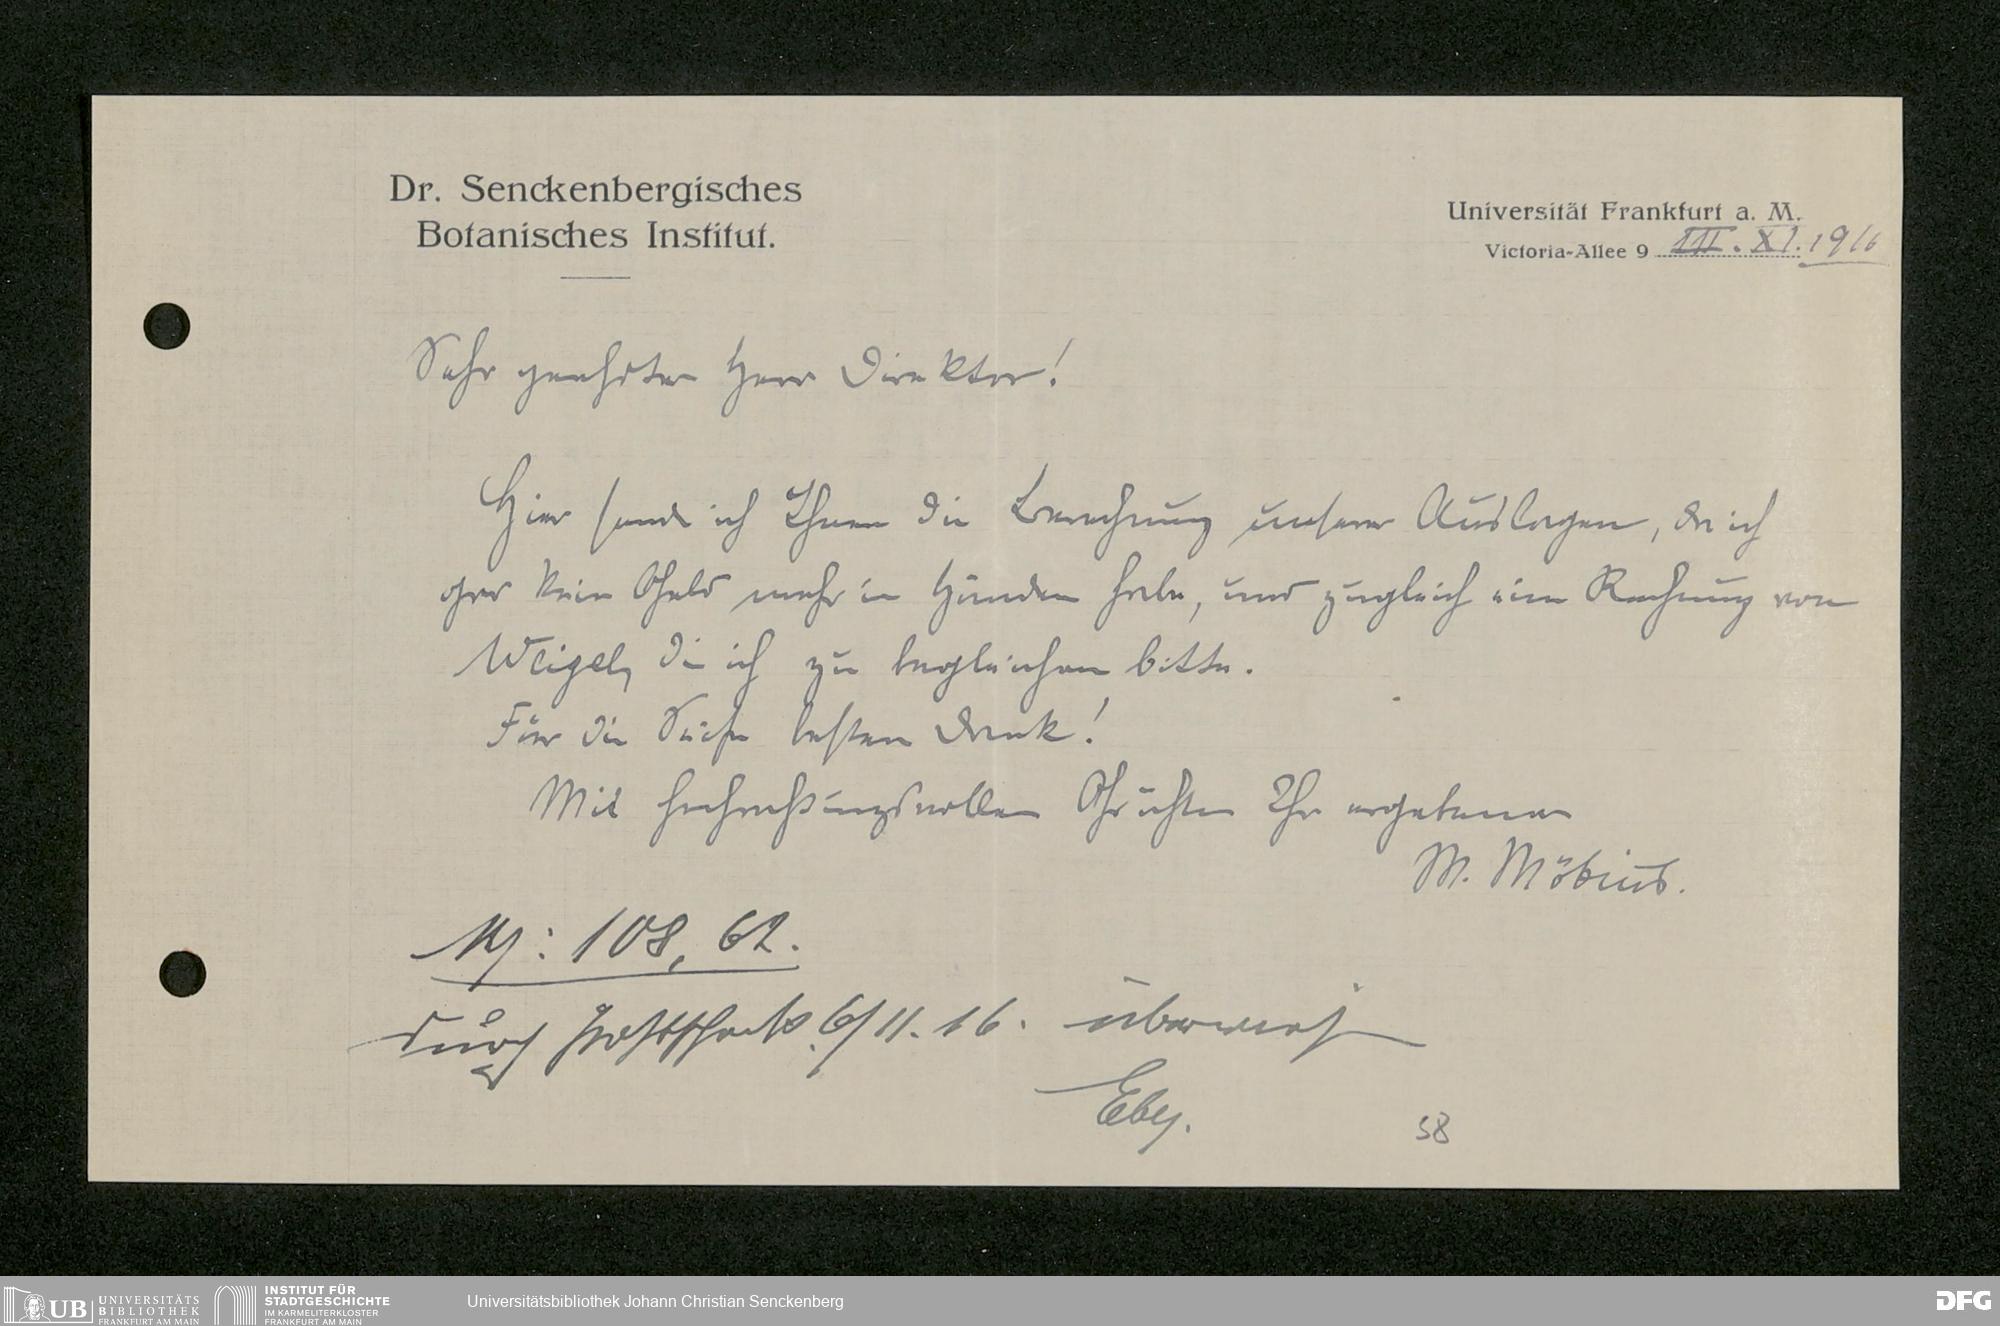 Dr. Senckenbergisches
Botanisches Institut.
Universität Frankfurt a. M.
Victoria-Allee 9 III. XI. 1916
Sehr geehrter Herr Direktor!
Hier sende ich Ihnen die Berechnung unserer Auslagen, da ich
gar kein Geld mehr in Händen habe, und zugleich eine Rechnung von
Weigel, die ich zu begleichen bitte.
Für die besten Dank!
Mit hochachtungsvollen Grüßen Ihr ergebener
M. Möbius.
M: 108,62.
durch Postscheck 6/11.16. überwiesen
58
UB UNIVERSITÄTS
BIBLIOTHEK
FRANKFURT AM MAIN
INSTITUT FÜR
STADTGESCHICHTE
IM KARMELITERKLOSTER
FRANKFURT AM MAIN
Universitätsbibliothek Johann Christian Senckenberg
DFG